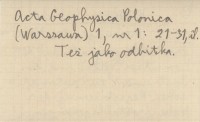 Acta Geophysica Polonica
(Warszawa) 1, nr 1: 21-31, il.
Też jako odbitka.